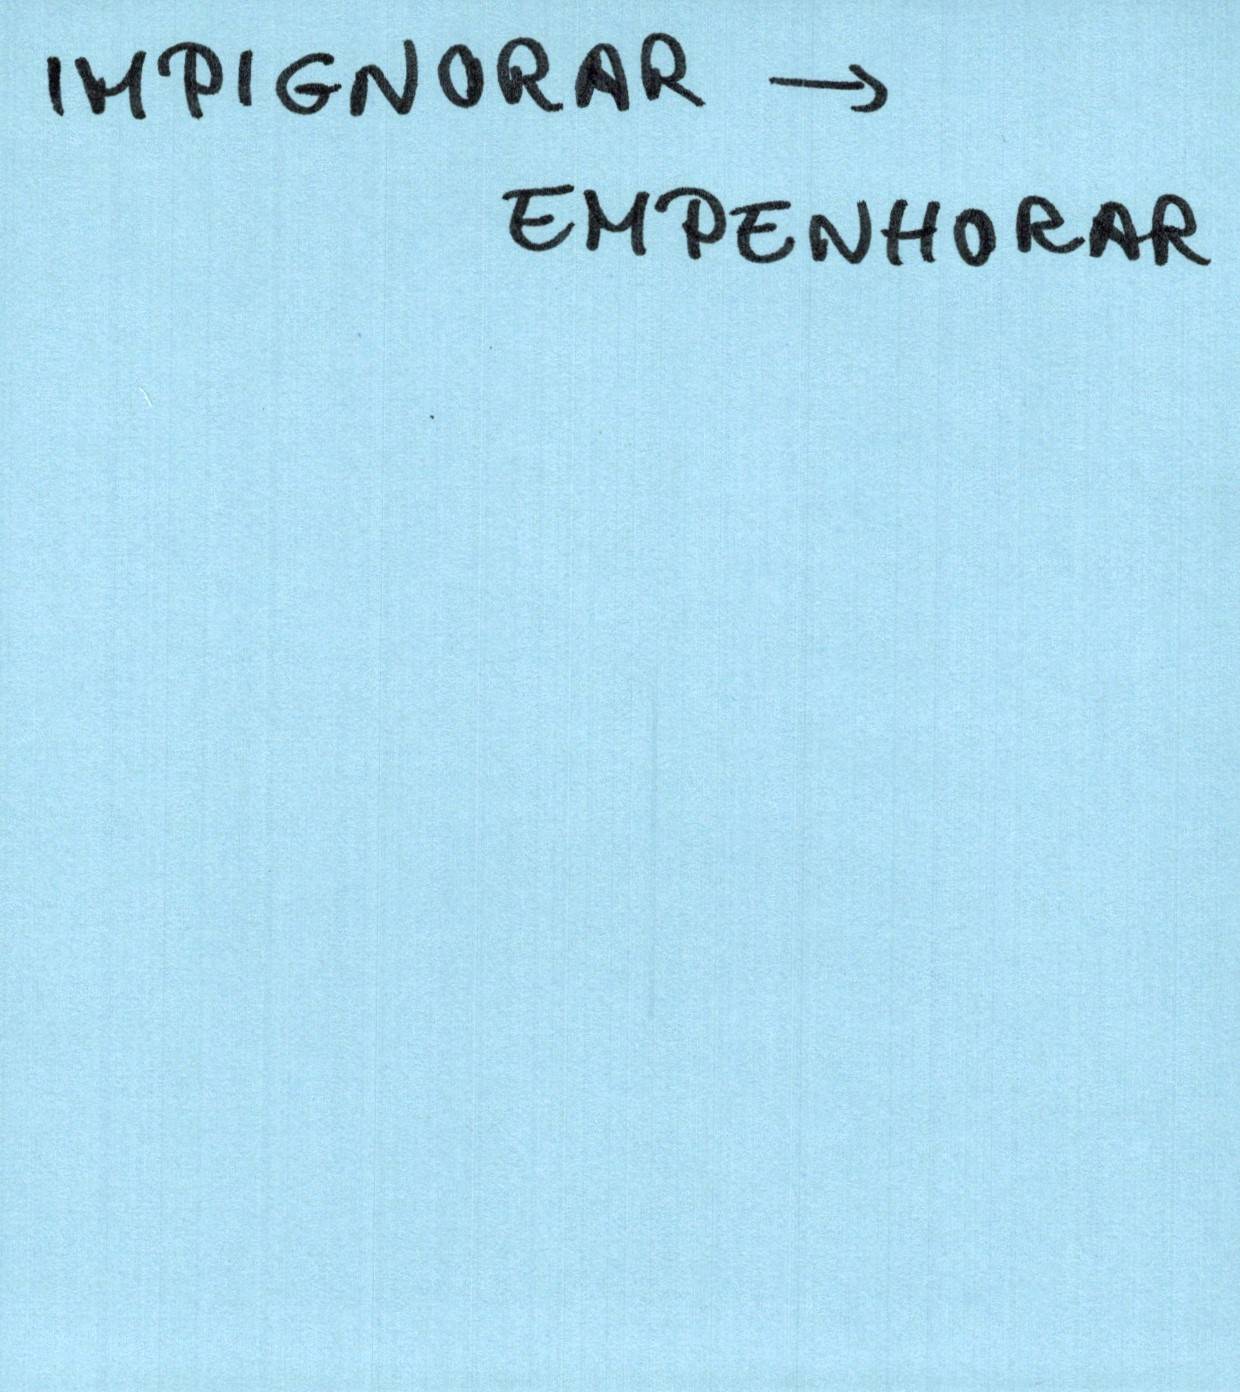 IMPIGNORAR →
EMPENHORAR